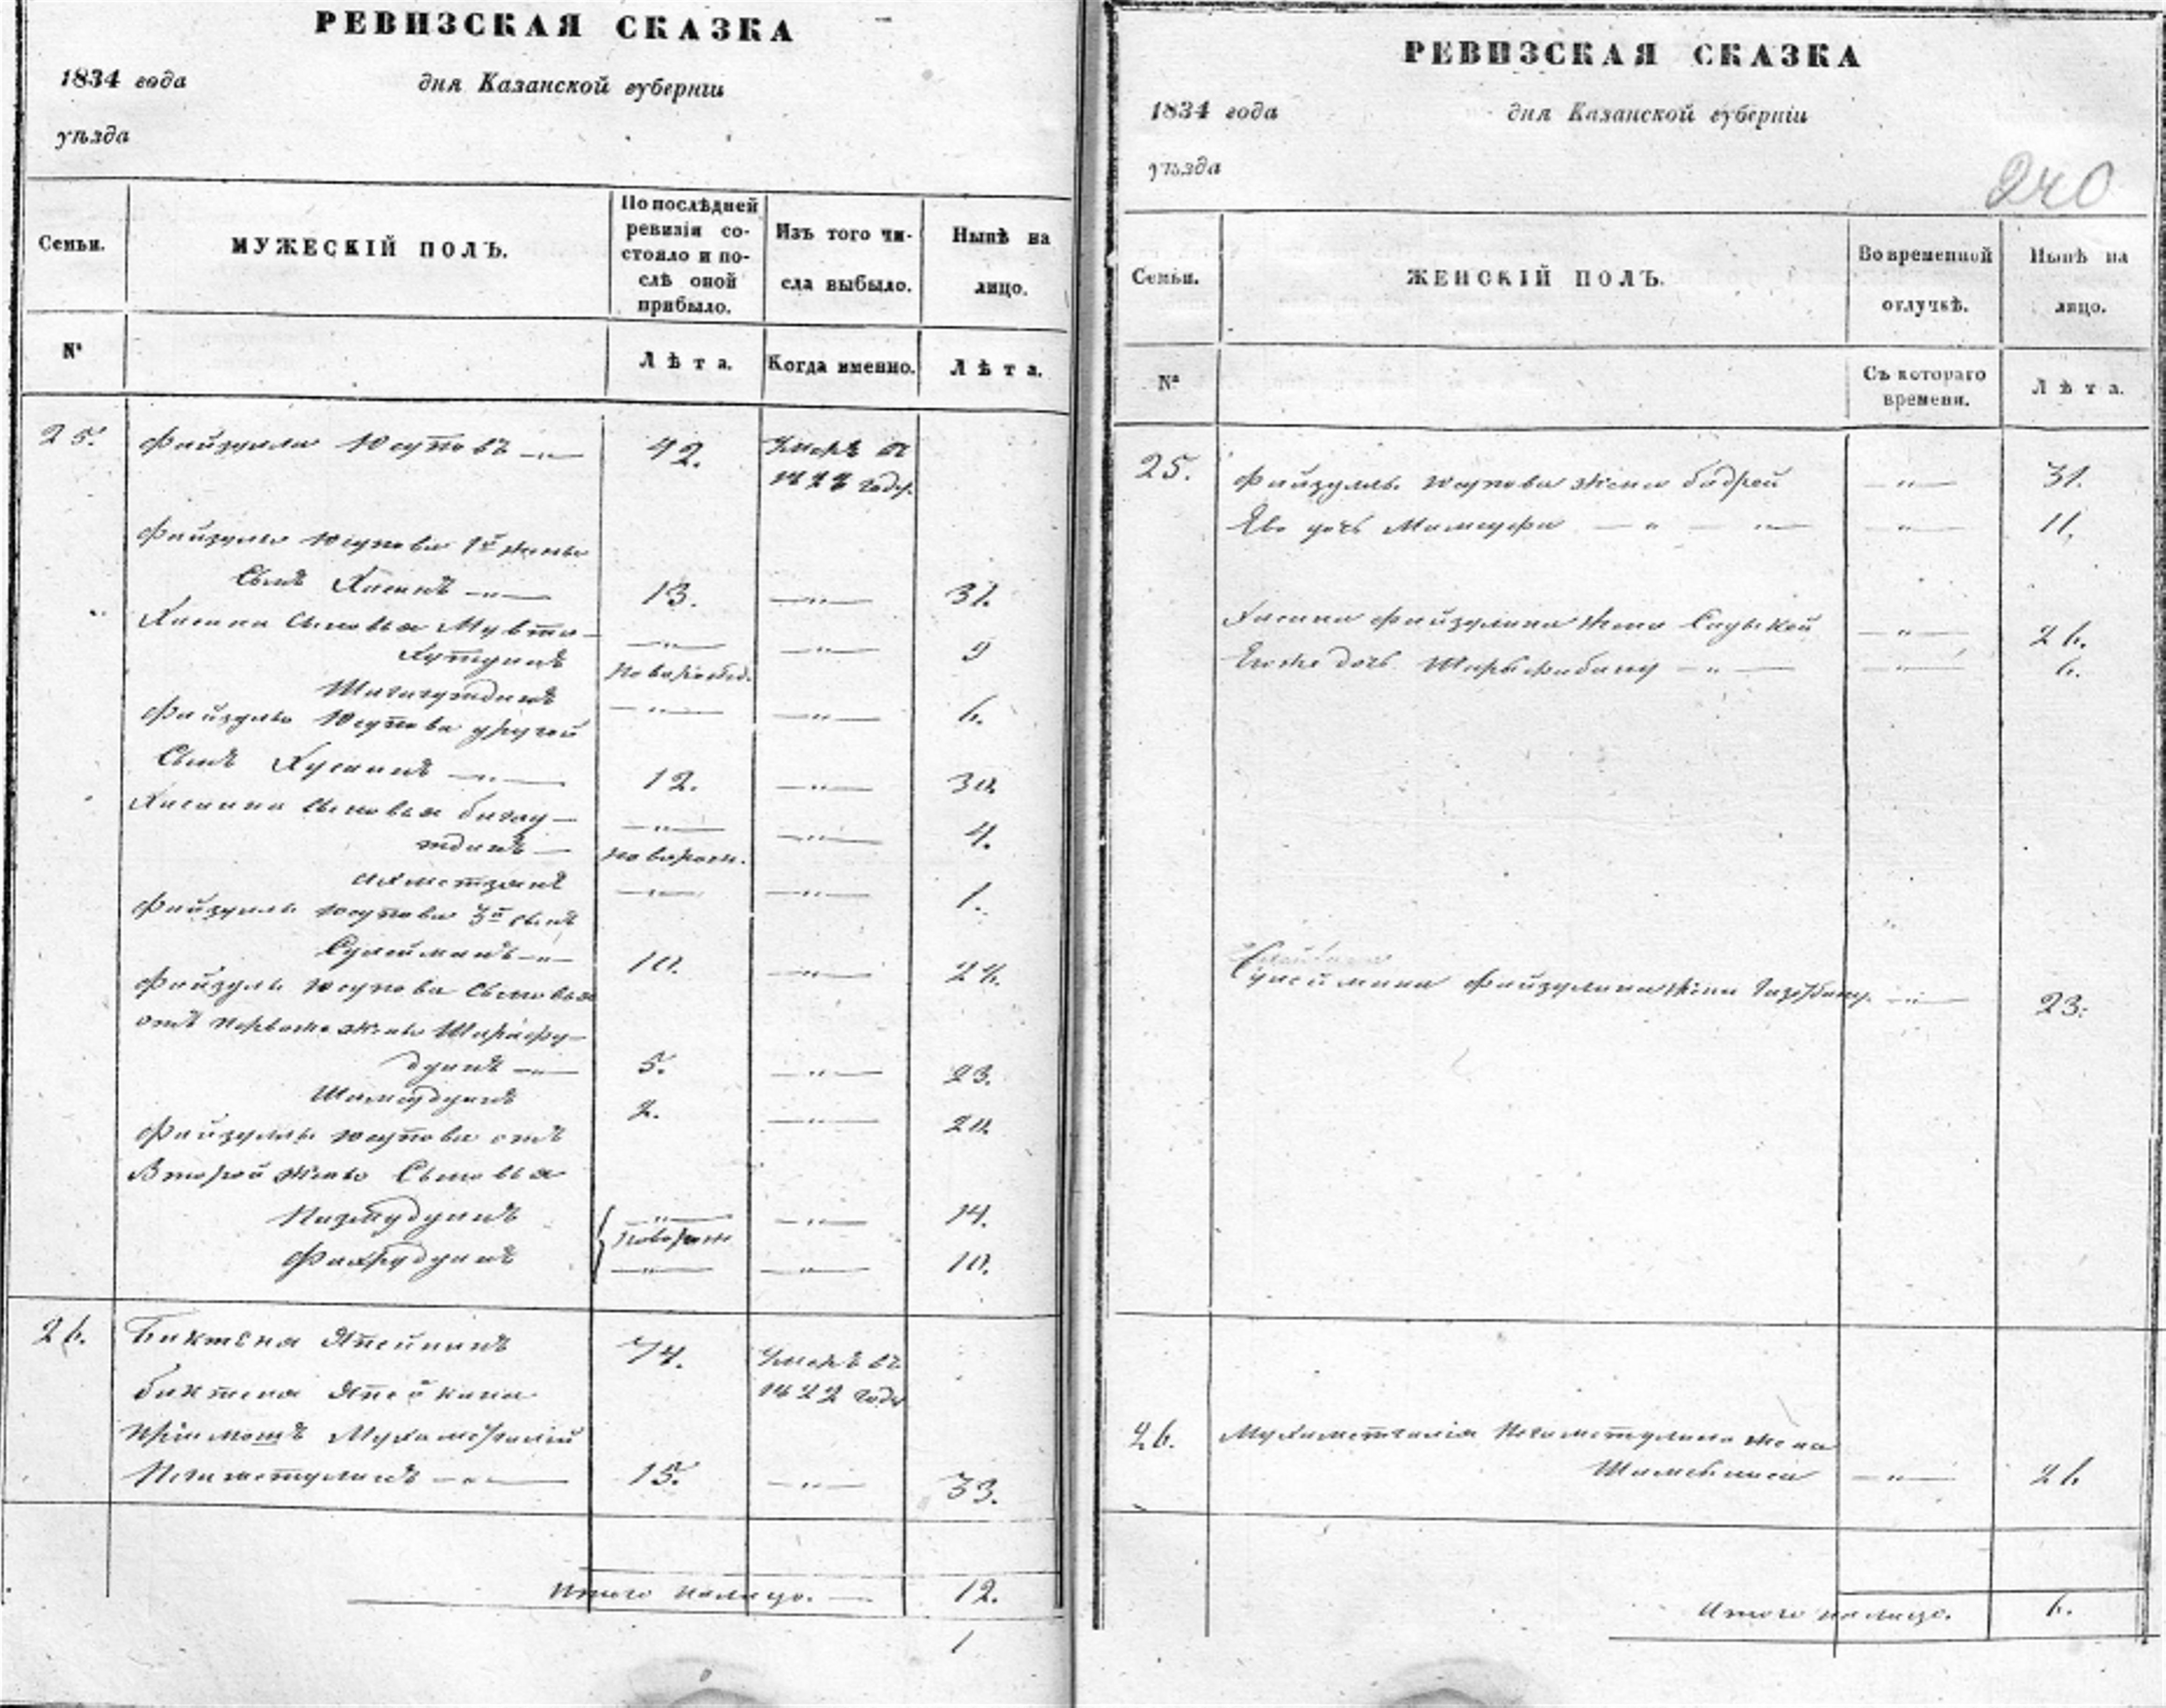 РЕВИЗСКАЯ СКАЗКА
1834 года дня Казанской губерніи
уѣзда
Семьи. МУЖЕСКІЙ ПОЛЪ. По послѣдней ревизіи состояло и послѣ оной прибыло. Изъ того числа выбыло. Нынѣ на лицо.
№ Лѣта. Когда именно. Лѣта.
25. Файзулла Юсуповъ 42. Умеръ въ
1828 году.
Файзуллы Юсупова 1й жены
Сынъ Хасанъ 13. 31.
Хасана сыновья Мувта-
хутдинъ новорожд. 9
Шигагутдинъ 6.
Файзуллы Юсупова другой
Сынъ Хусаинъ 12. 30.
Хасаина сыновья бигау-
тдинъ новорож. 4.
Ахметзянъ 1.
Файзуллы Юсупова 3й сынъ
Сулейманъ 10. 28.
Файзуллы Юсупова Сыновья
отъ первой жены Шарафу-
дунъ 5. 23.
Шамсудунъ 2. 20.
Файзуллы Юсупова отъ
Второй жены Сыновья
Низмудунъ новорож 14.
Фахрудунъ 10.
26. 74. Умеръ въ
1822 году
Пріимышъ Мухаметгалій
Нигаметулинъ 15. 33.
Итого налицо. 12.
1
РЕВИЗСКАЯ СКАЗКА
1834 года дня Казанской губерніи
уѣзда
240
Семьи. ЖЕНСКІЙ ПОЛЪ. Во временной отлучкѣ. Нынѣ на лицо.
№ Съ котораго времени. Лѣта.
25. Файзуллы Юсупова жена бадрей 31.
Ево дочь 11.
Хасана Файзулина жена 26.
Егоже дочь Шарыфабану 6.
Сулеймана Файзулина жена 23.
26. Мухаметгалія Нигаметулина жена
26.
Итого налицо. 6.